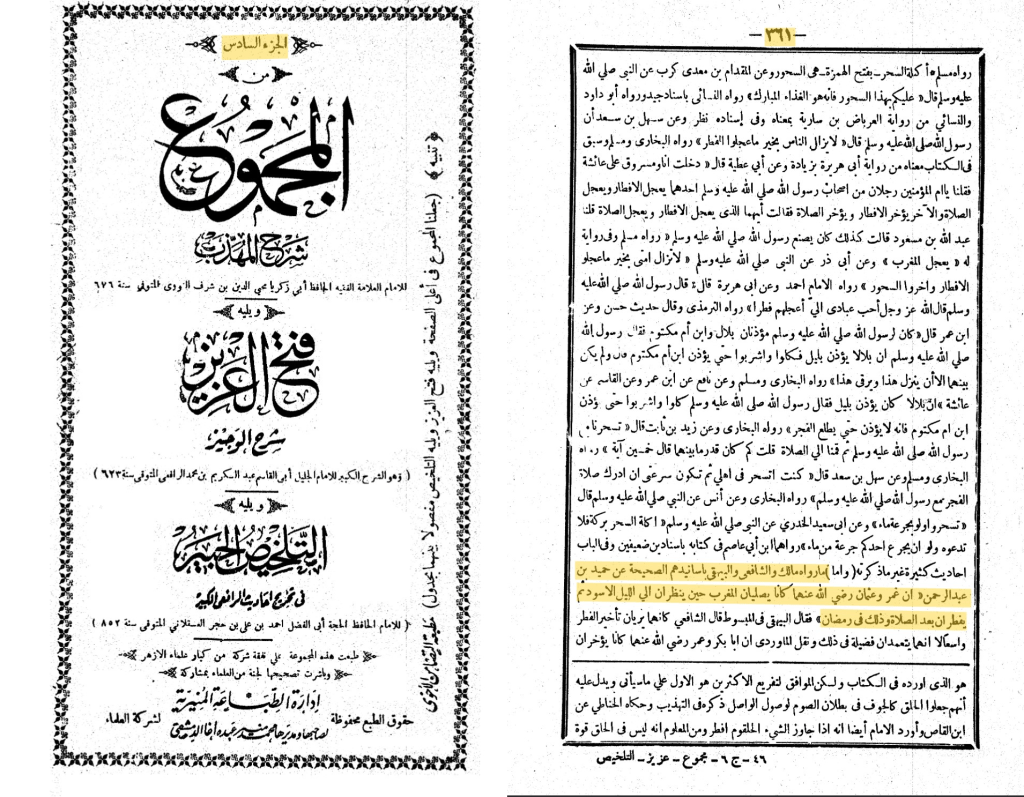 الجزء السادس
من
المجموع
شرح المهذب
للامام العلامة الفقيه الحافظ أبي زكريا محيي الدين بن شرف النووي المتوفى سنة ٦٧٦
ويليه
فتح العزيز
شرح الوجيز
( وهو الشرح الكبير للامام الجليل أبي القاسم عبد الكريم بن محمد الرافعي المتوفى سنة ٦٢٣ )
ويليه
التلخيص الحبير
في تخريج أحاديث الرافعي الكبير
( للامام الحافظ الحجة أبي الفضل احمد بن علي بن حجر العسقلاني المتوفى سنة ٨٥٢ )
طبعت هذه المجموعة على نفقة شركة من كبار علماء الازهر
وباشرت تصحيحها لجنة من العلماء بمشاركة
إدارة الطباعة المنيرية
لصاحبها ومديرها محمد منير عبده أغا الدمشقي
حقوق الطبع محفوظة
لشركة العلماء
﴿ تنبيه ﴾ (جعلنا المجموع في أعلى الصفحة ويليه فتح العزيز ويليه التلخيص مفصولا بينهما بجدول)
مطبعة التضامن الأخوي
— ٣٦١ —
رواه مسلم «أكلة السحر» بفتح الهمزة هى السحور وعن المقدام بن معدى كرب عن النبى صلي الله
عليه وسلم قال « عليكم بهذا السحور فانه هو الغذاء المبارك » رواه النسائى باسناد جيد ورواه أبو داود
والنسائي من رواية العرباض بن سارية بمعناه وفى إسناده نظر وعن سهل بن سعد أن
رسول الله صلى الله عليه وسلم قال « لا يزال الناس بخير ما عجلوا الفطر » رواه البخارى ومسلم وسبق
فى الكتاب معناه من رواية أبى هريرة بزيادة وعن أبي عطية قال « دخلت انا ومسروق على عائشة
فقلنا ياام المؤمنين رجلان من اصحاب رسول الله صلي الله عليه وسلم احدهما يعجل الافطار ويعجل
الصلاة والآخر يؤخر الافطار و يؤخر الصلاة فقالت أيهما الذى يعجل الافطار ويعجل الصلاة قلنا
عبد الله بن مسعود قالت كذلك كان يصنع رسول الله صلي الله عليه وسلم « رواه مسلم وفى رواية
له « يعجل المغرب » وعن أبى ذر عن النبي صلي الله عليه وسلم « لاتزال امتى بخير ماعجلو
الافطار واخروا السحور » رواه الامام احمد وعن ابى هريرة قال : قال رسول الله صلى الله عليه
وسلم قال الله عز وجل أحب عبادى الي أعجلهم فطرا » رواه الترمذى وقال حديث حسن وعن
ابن عمر قال « كان لرسول الله صلي الله عليه وسلم مؤذنان بلال وابن أم مكتوم فقال رسول الله
صلي الله عليه وسلم ان بلالا يؤذن بليل فكلوا واشربوا حتى يؤذن ابن أم مكتوم قال ولم يكن
بينهما الا أن ينزل هذا ويرقى هذا » رواه البخارى ومسلم وعن نافع عن ابن عمر وعن القاسم عن
عائشة « ان بلالا كان يؤذن بليل فقال رسول الله صلى الله عليه وسلم كلوا واشربوا حتى يؤذن
ابن ام مكتوم فانه لا يؤذن حتى يطلع الفجر » رواه البخارى وعن زيد بن ثابت قال « تسحرنا مع
رسول الله صلى الله عليه وسلم ثم قمنا الي الصلاة قلت كم كان قدر مابينها قال خمسين آية » رواه
البخارى ومسلم وعن سهل بن سعد قال « كنت اتسحر فى اهلي ثم تكون سرعتى ان ادرك صلاة
الفجر مع رسول الله صلي الله عليه وسلم » رواه البخارى وعن أنس عن النبي صلي الله عليه وسلم قال
« تسحروا ولو بجرعة ماء » وعن ابى سعيد الخدرى عن النبى صلي الله عليه وسلم « اكلة السحر بركة فلا
تدعوه ولو ان يجرع احدكم جرعة من ماء » رواهما ابن أبى عاصم فى كتابه باسنادين ضعيفين وفى الباب
احاديث كثيرة غير ماذكرته ( واما ) مارواه مالك والشافعى والبيهقى باسانيدهم الصحيحة عن حميد بن
عبد الرحمن « ان عمر وعثمان رضي الله عنهما كانا يصليان المغرب حين ينظران الي الليل الاسود ثم
يفطران بعد الصلاة وذلك فى رمضان » فقال البيهقى فى المبسوط قال الشافعي كانهما يريان تأخير الفطر
واسعا لا انهما يتعمدان فضيلة فى ذلك ونقل الماوردى ان ابا بكر وعمر رضي الله عنهما كانا يؤخران
هو الذى اورده فى الكتاب ولكن الموافق لتفريع الاكثرين هو الاول علي ماسيأتى ويدل عليه
أنهم جعلوا الحلق كالجوف فى بطلان الصوم لوصول الواصل ذكره فى التهذيب وحكاه الحناطي عن
ابن القاص وأورد الامام أيضا انه اذا جاوز الشىء الحلقوم افطر ومن المعلوم انه ليس فى الحلق قوة
٤٦ – ج ٦ – مجموع – عزيز – التلخيص